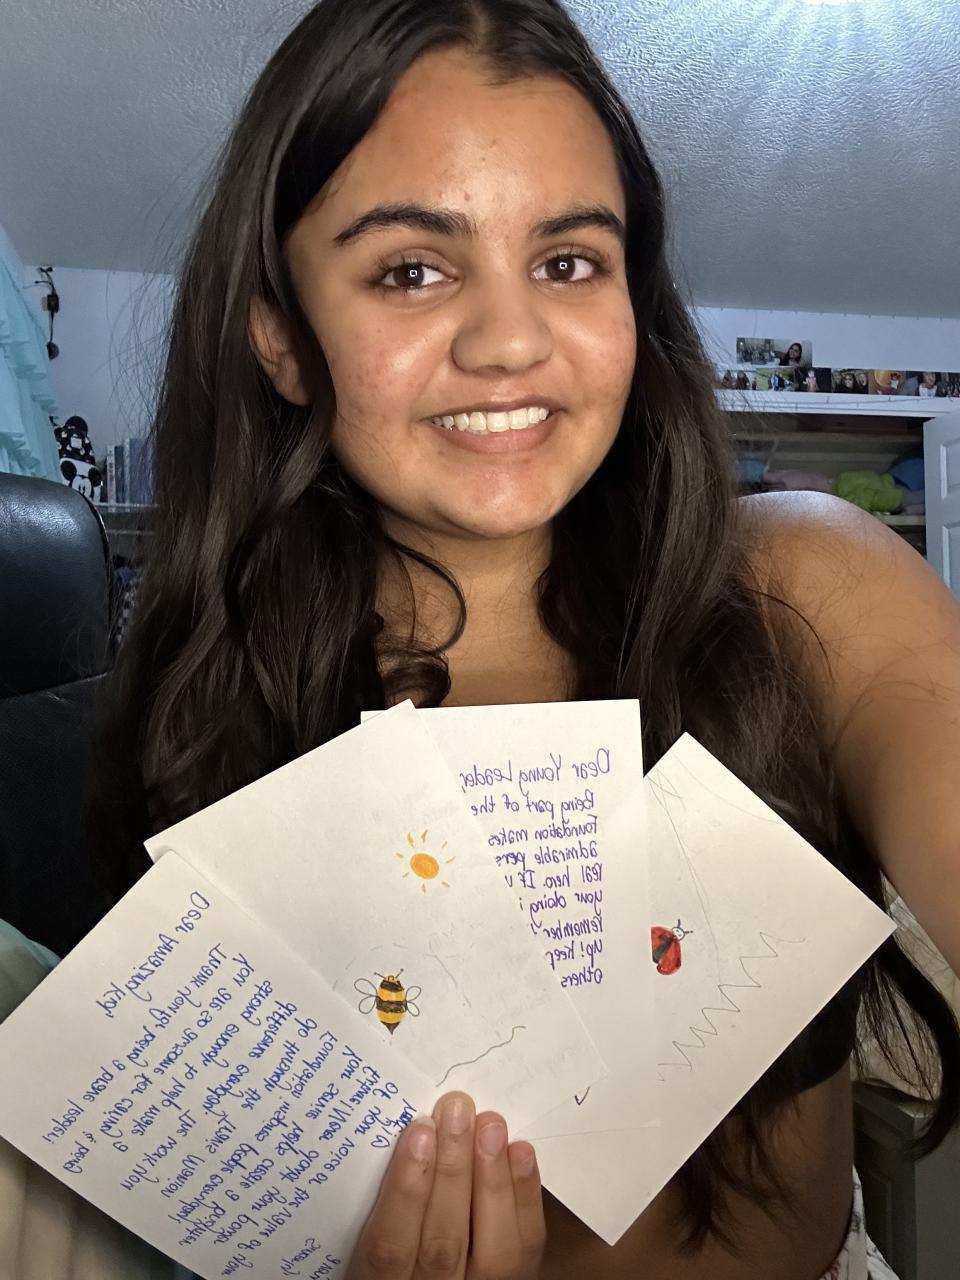 Dear Amazing Kid,
Thank you for being a brave leader!
You are so awsome for caring & being
strong enough to help make a
difference everyday. The work you
do through the Travis Manion
Foundation inspires people everyday!
Your service helps create a brighter
future! Never doubt your power
or your voice or the value of your
Sincerely,
Dear Young Leader,
Being part of the
Foundation makes
admirable pers
real hero. If
your doing
remember
up! Keep
others